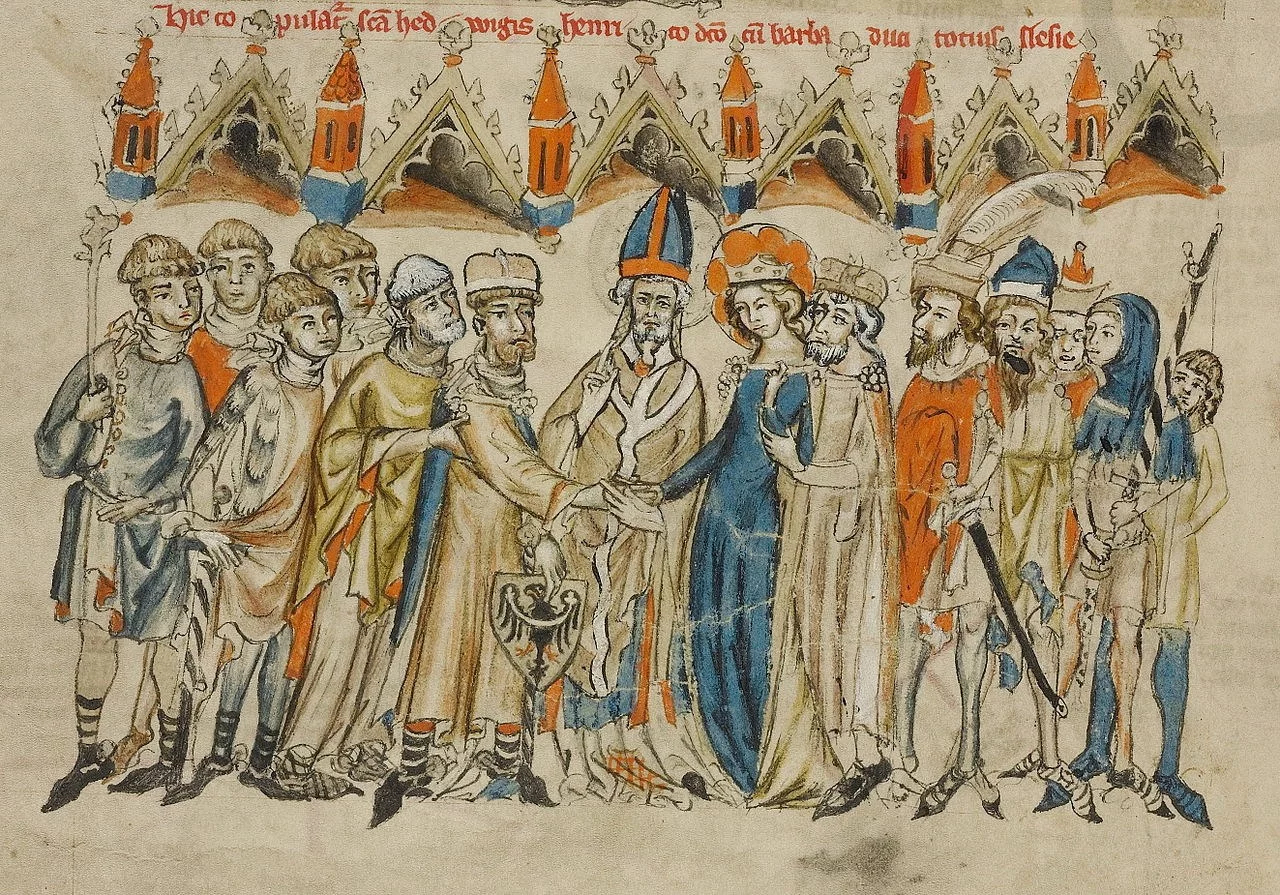 Hic copulat᷑ sc̄a hedwigis henrico dc̄o cū barba duci tocius slesie